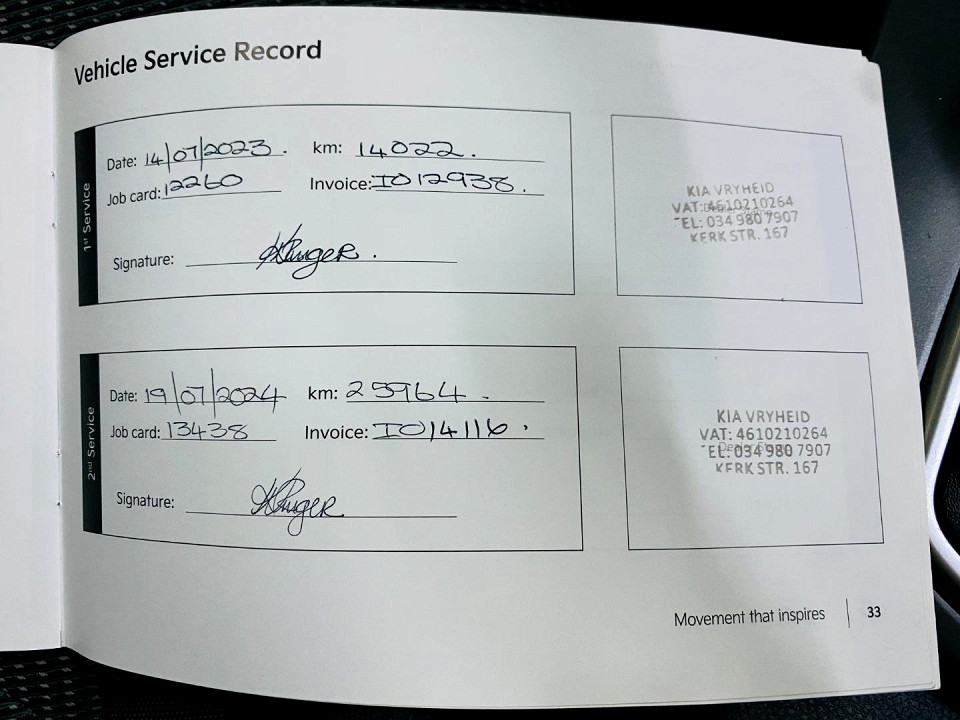 Vehicle Service Record
1st Service
Date: 14/07/2023. km: 14022.
Job card: 12260 Invoice: IO12938.
Signature: Kruger.
KIA VRYHEID
VAT: 4610210264
TEL: 034 980 7907
KERK STR. 167
2nd Service
Date: 19/07/2024 km: 25964.
Job card: 13438 Invoice: IO14116.
Signature: Kruger
KIA VRYHEID
VAT: 4610210264
TEL: 034 980 7907
KERK STR. 167
Movement that inspires | 33